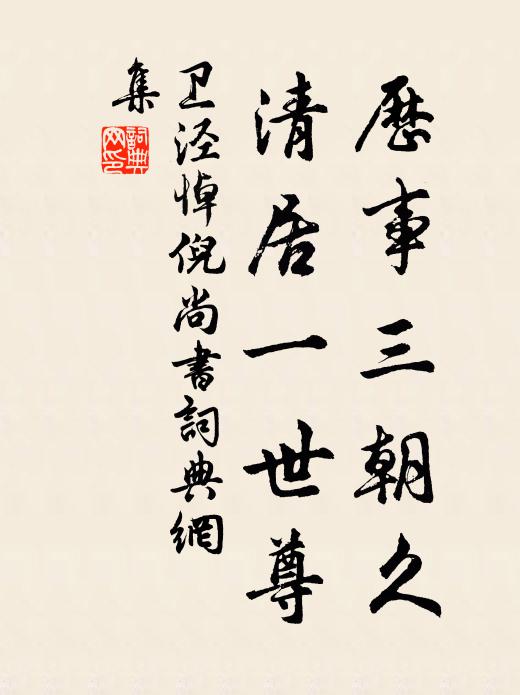 歷事三朝久
清居一世尊
卫泾悼倪尚書詞典網
集
詞典網印